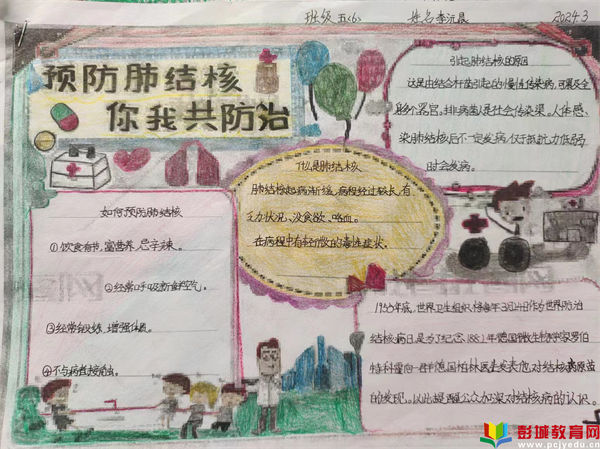 班级 五(6) 姓名 李沅晨 2024.3
预防肺结核
你我共防治
引起肺结核的原因
这是由结合杆菌引起的慢性传染病,可累及全
身多个器官。排病菌人是社会传染源。人体感
染肺结核后不一定发病,仅于抵抗力低弱
时会发病。
什么是肺结核
肺结核起病渐缓,病程经过较长,有
乏力状况、没食欲、咯血。
在病程中有轻微的毒性症状。
如何预防肺结核
①饮食有节,富营养,忌辛辣。
②经常呼吸新鲜空气。
③经常锻炼,增强体质。
④不与病者接
1995年底,世界卫生组织将每年3月24日作为世界防治
结核病日,是为了纪念1882年德国微生物科学家罗伯
特科霍向一群德国柏林医生发表他对结核病病原菌
的发现。以此提醒公众加深对结核病的认识。
彭城教育网
www.pcjyedu.cn